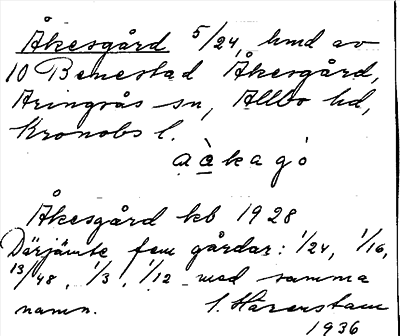 Åkesgård 5/24, hmd av
10 Benestad Åkesgård,
Aringsås sn, Allbo hd,
Kronobs l.
àc̀kagò
Åkesgård kb 1928
Därjämte fem gårdar: 1/24, 1/16,
13/48, 1/3, 1/12 med samma
namn. I. Härenstam
1936